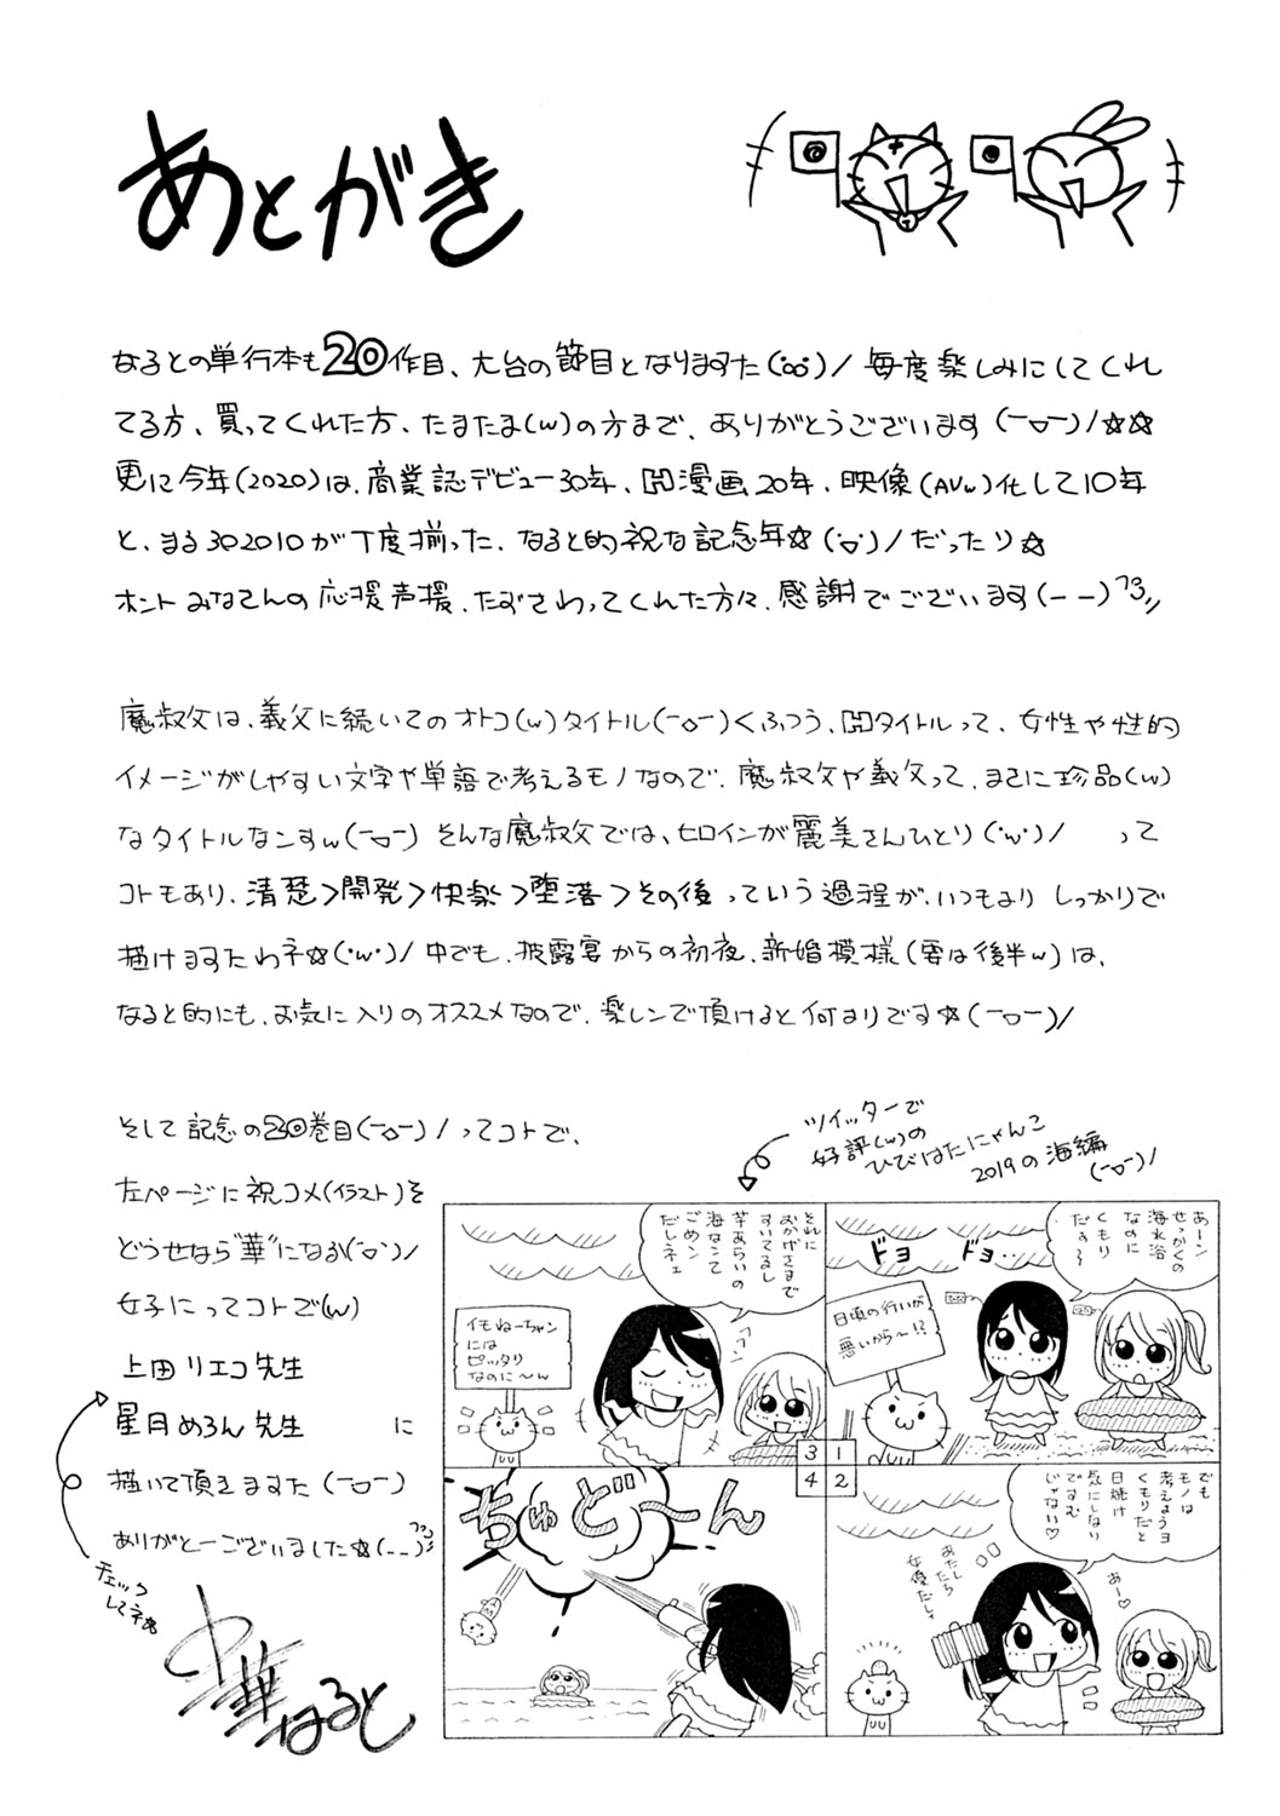 あとがき
なるとの単行本も20作目、大台の節目となりますた(◦oo◦)/ 毎度楽しみにしてくれ
てる方、買ってくれた方、たまたま(w)の方まで、ありがとうございます(￣▽￣)/☆☆
更に今年(2020)は、商業誌デビュー30年、H漫画20年、映像(AVw)化して10年
と、まる302010が丁度揃った、なると的祝な記念年☆(˙▽˙)/だったり☆
ホントみなさんの応援声援、たずさわってくれた方々、感謝でございます(－－)ﾌｶ〃
魔叔父は、義父に続いてのオトコ(w)タイトル(￣▽￣)くふつう、Hタイトルって、女性や性的
イメージがしやすい文字や単語で考えるモノなので、魔叔父や義父って、まさに珍品(w)
なタイトルなンすw(￣▽￣) そんな魔叔父では、ヒロインが麗美さんひとり(˙w˙)/ って
コトもあり、清楚>開発>快楽>堕落>その後 っていう過程が、いつもより しっかりで
描けますたわネ☆(˙w˙)/ 中でも、披露宴からの初夜、新婚模様(要は後半w)は、
なると的にも、お気に入りのオススメなので、楽しンで頂けると何よりです☆(￣▽￣)/
そして記念の20巻目(￣▽￣)/ってコトで、
左ページに祝コメ(イラスト)を
どうせなら"華"になる(˙▽˙)/
女子にってコトで(w)
上田リエコ先生
星月めろん先生 に
描いて頂きますた(￣▽￣)
ありがとーございました☆(－－)ﾌｶ〃
チェック
してネ☆
中華なると
ツイッターで
好評(w)の
ひびはたにゃんこ
2019の海編
(￣▽￣)/
あーン
せっかくの
海水浴
なのに
くもり
だぁ～
ドヨ ドヨ‥
日頃の行いが
悪いから～!?
1
でも
モノは
考えようヨ
くもりだと
日焼け
気にしない
ですむ
じゃない♡
あー♡
あたし
たら
女優だし♡
2
それに
おかげさまで
すいてるし
芋あらいの
海なンて
ごめン
だしネェ
フン
イモねーちゃン
には
ピッタリ
なのに～ん
3
ちゅど～ん
4